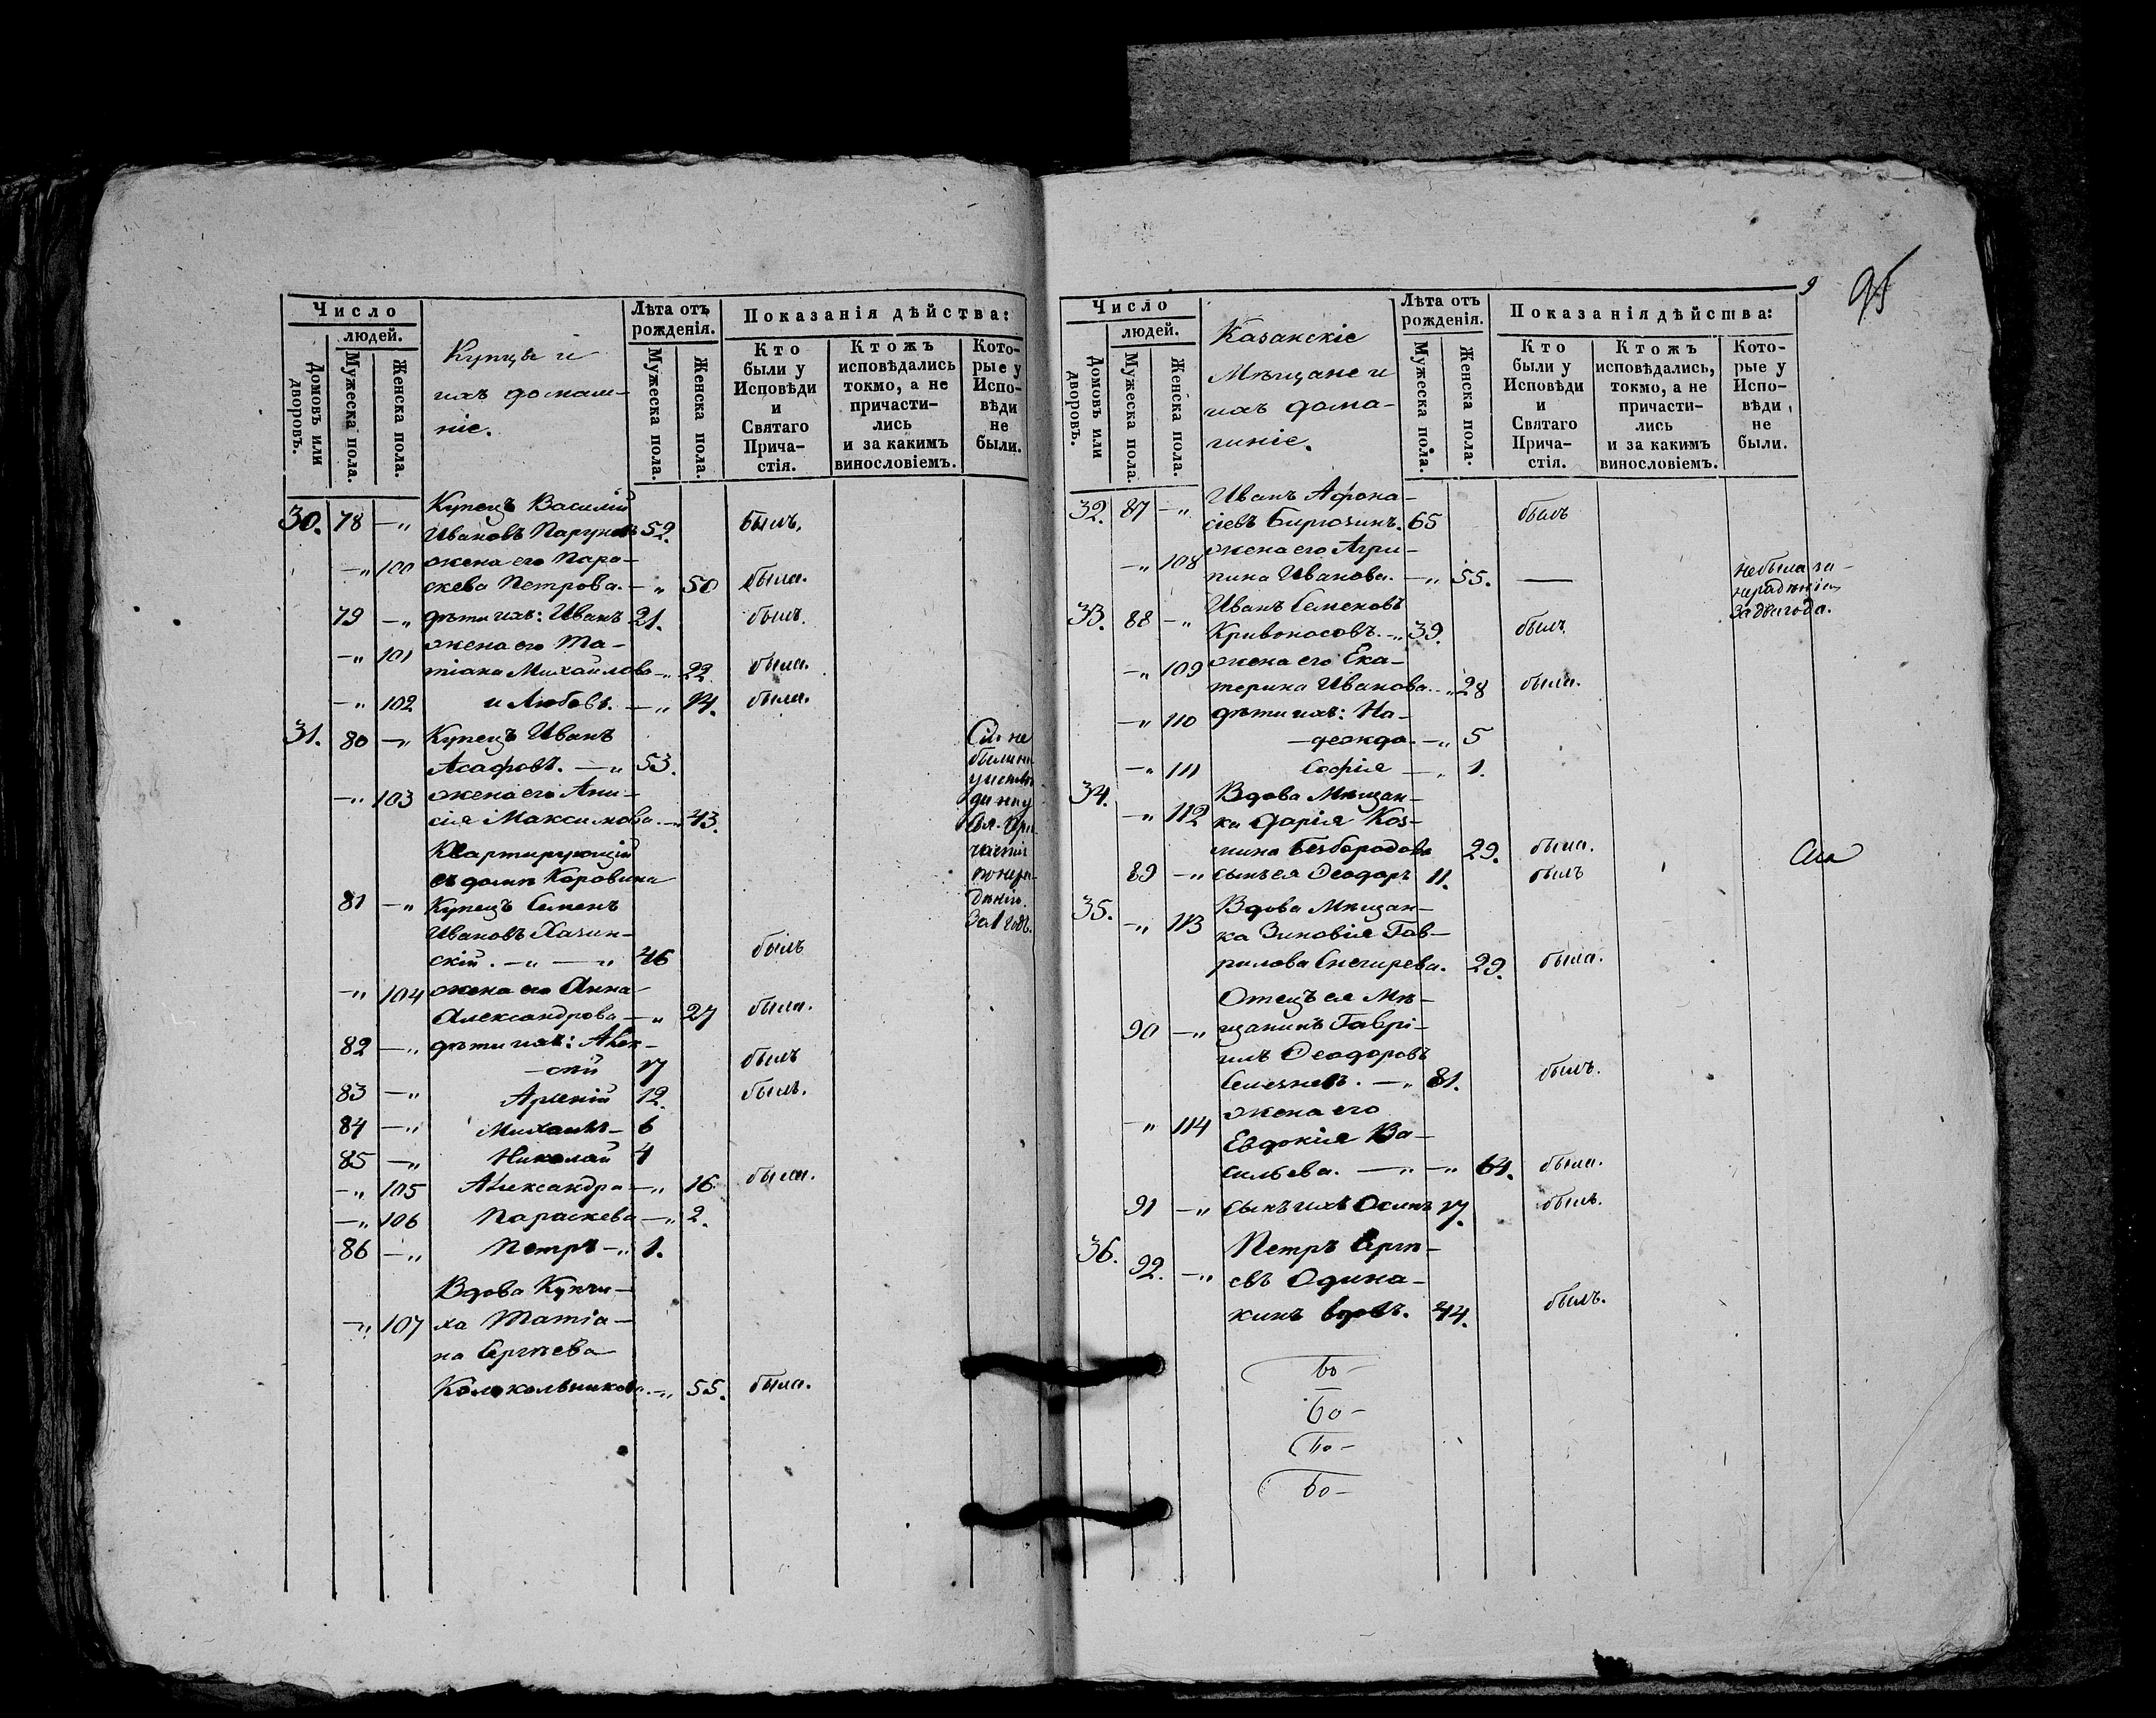 Число
людей.
Домовъ или дворовъ.
Мужеска пола.
Женска пола.
Купцы и
ихъ домаш-
ніе.
Лѣта отъ рожденія.
Мужеска пола.
Женска пола.
Показанія дѣйства:
Кто были у Исповѣди и Святаго Прича- стія.
Ктожъ исповѣдались токмо, а не причасти- лись и за какимъ винословіемъ.
Кото- рые у Испо- вѣди не были.
30. 78 —„ Купецъ Василій
Ивановъ 52. былъ.
—„ 100 жена его Пара-
скева Петрова. —„ 50 была.
79 —„ дѣти ихъ: Иванъ 21. былъ.
—„ 101 жена его Та-
тіана Михайлова —„ 22. была.
—„ 102 и Любовь. —„ 14. была.
31. 80 —„ Купецъ Иванъ
Асафовъ. —„ 53.
—„ 103 жена его Ани-
сія Максимова. —„ 43.
Сіи не
были ни
у исповѣ
ди ни у
Св. При-
частія
по нера-
дѣнію.
За 1 годъ.
Квартирующій
въ домѣ Коровина
81 —„ Купецъ Семенъ
Ивановъ
скій. —„ —„ 46 былъ
—„ 104 жена его Анна
Александрова —„ 27 была.
82 —„ дѣти ихъ: Алек-
сѣй 17 былъ
83 —„ Арсеній 12. былъ.
84 —„ Михаилъ — 6
85 —„ Николай 4
—„ 105 Александра —„ 16. была.
—„ 106 Параскева —„ 2.
86 —„ Петръ —„ 1.
Вдова Купчи-
—„ 107 ха Татіа-
на Сергѣева
Колокольникова. —„ 55. была.
9 95
Число
людей.
Домовъ или дворовъ.
Мужеска пола.
Женска пола.
Казанскіе
Мѣщане и
ихъ дома-
шніе.
Лѣта отъ рожденія.
Мужеска пола.
Женска пола.
Показанія дѣйства:
Кто были у Исповѣди и Святаго Прича- стія.
Ктожъ исповѣдались, токмо, а не причасти- лись и за какимъ винословіемъ.
Кото- рые у Испо- вѣди не были.
32. 87 —„ Иванъ Афона-
сіевъ 65 былъ
—„ 108 жена его Агри-
пина Иванова. —„ 55. —
не была за
нерадѣніемъ
за два года.
33. 88 —„ Иванъ Семеновъ
Кривоносовъ. —„ 39. былъ.
—„ 109 жена его Ека-
терина Иванова. —„ 28 была.
—„ 110 дѣти ихъ: На-
—дежда. —„ 5
—„ 111 Софія —„ 1.
34. Вдова Мѣщан-
—„ 112 ка Дарія Коз-
мина Безбородова 29. была.
89 —„ сынъ ея Ѳеодоръ 11. былъ
35. Вдова Мѣщан-
—„ 113 ка Зиновія Гав-
рилова Снегирева. 29. была.
Отецъ ея Мѣ-
90 —„ щанинъ Гаврі-
илъ Ѳеодоровъ
—„ 81. былъ.
—„ 114 жена его
Евдокія Ва-
сильева. —„ —„ 64. была.
91 —„ сынъ ихъ Осипъ 17. былъ.
36. 92. —„ Петръ Сергѣ-
евъ Одина-
кинъ вдовъ. 44. былъ.